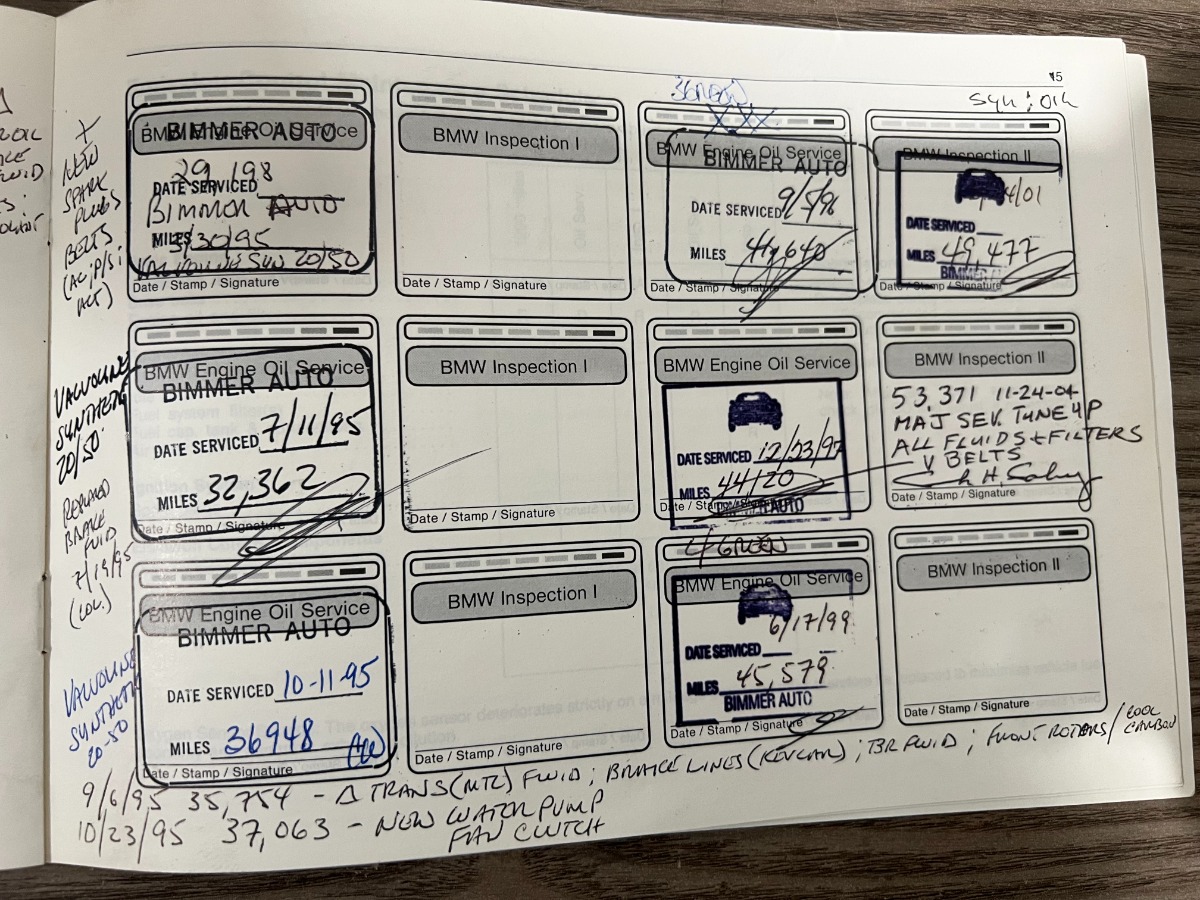 15
Syn : OIL
+
NEW
SPARK
PLUGS
BELTS
(AC, P/S;
ALT)
BMW Engine Oil Service
BIMMER AUTO
29,198
DATE SERVICED
BIMMER AUTO
MILES
3/30/95
VALVOLINE SYN 20/50
Date / Stamp / Signature
BMW Inspection I
Date / Stamp / Signature
3GREEN
XXX
BMW Engine Oil Service
BIMMER AUTO
DATE SERVICED 9/5/96
MILES 41,640
Date / Stamp / Signature
BMW Inspection II
4/01
DATE SERVICED
MILES 49,477
BIMMER
Date / Stamp / Signature
VALVOLINE
SYNTHETIC
20/50
REPLACED
BRAKE
FLUID
7/19/95
BMW Engine Oil Service
BIMMER AUTO
DATE SERVICED 7/11/95
MILES 32,362
Date / Stamp / Signature
BMW Inspection I
Date / Stamp / Signature
BMW Engine Oil Service
DATE SERVICED 12/23/97
MILES 44120
AUTO
Date / Stamp / Signature
BMW Inspection II
53,371 11-24-04
MAJ SEV. TUNE UP
ALL FLUIDS + FILTERS
V BELTS
Date / Stamp / Signature
VALVOLINE
SYNTHETIC
20-50
BMW Engine Oil Service
BIMMER AUTO
DATE SERVICED 10-11-95
MILES 36948
Date / Stamp / Signature
BMW Inspection I
Date / Stamp / Signature
4 GREEN
BMW Engine Oil Service
6/17/99
DATE SERVICED
MILES 45,579
BIMMER AUTO
Date / Stamp / Signature
BMW Inspection II
Date / Stamp / Signature
9/6/95 35,754 - Δ TRANS (MTL) FLUID ; BRAKE LINES (KEVLAR) ; FLUID ; FRONT ROTORS / COOL CARBON
10/23/95 37,063 - NEW WATER PUMP
FAN CLUTCH